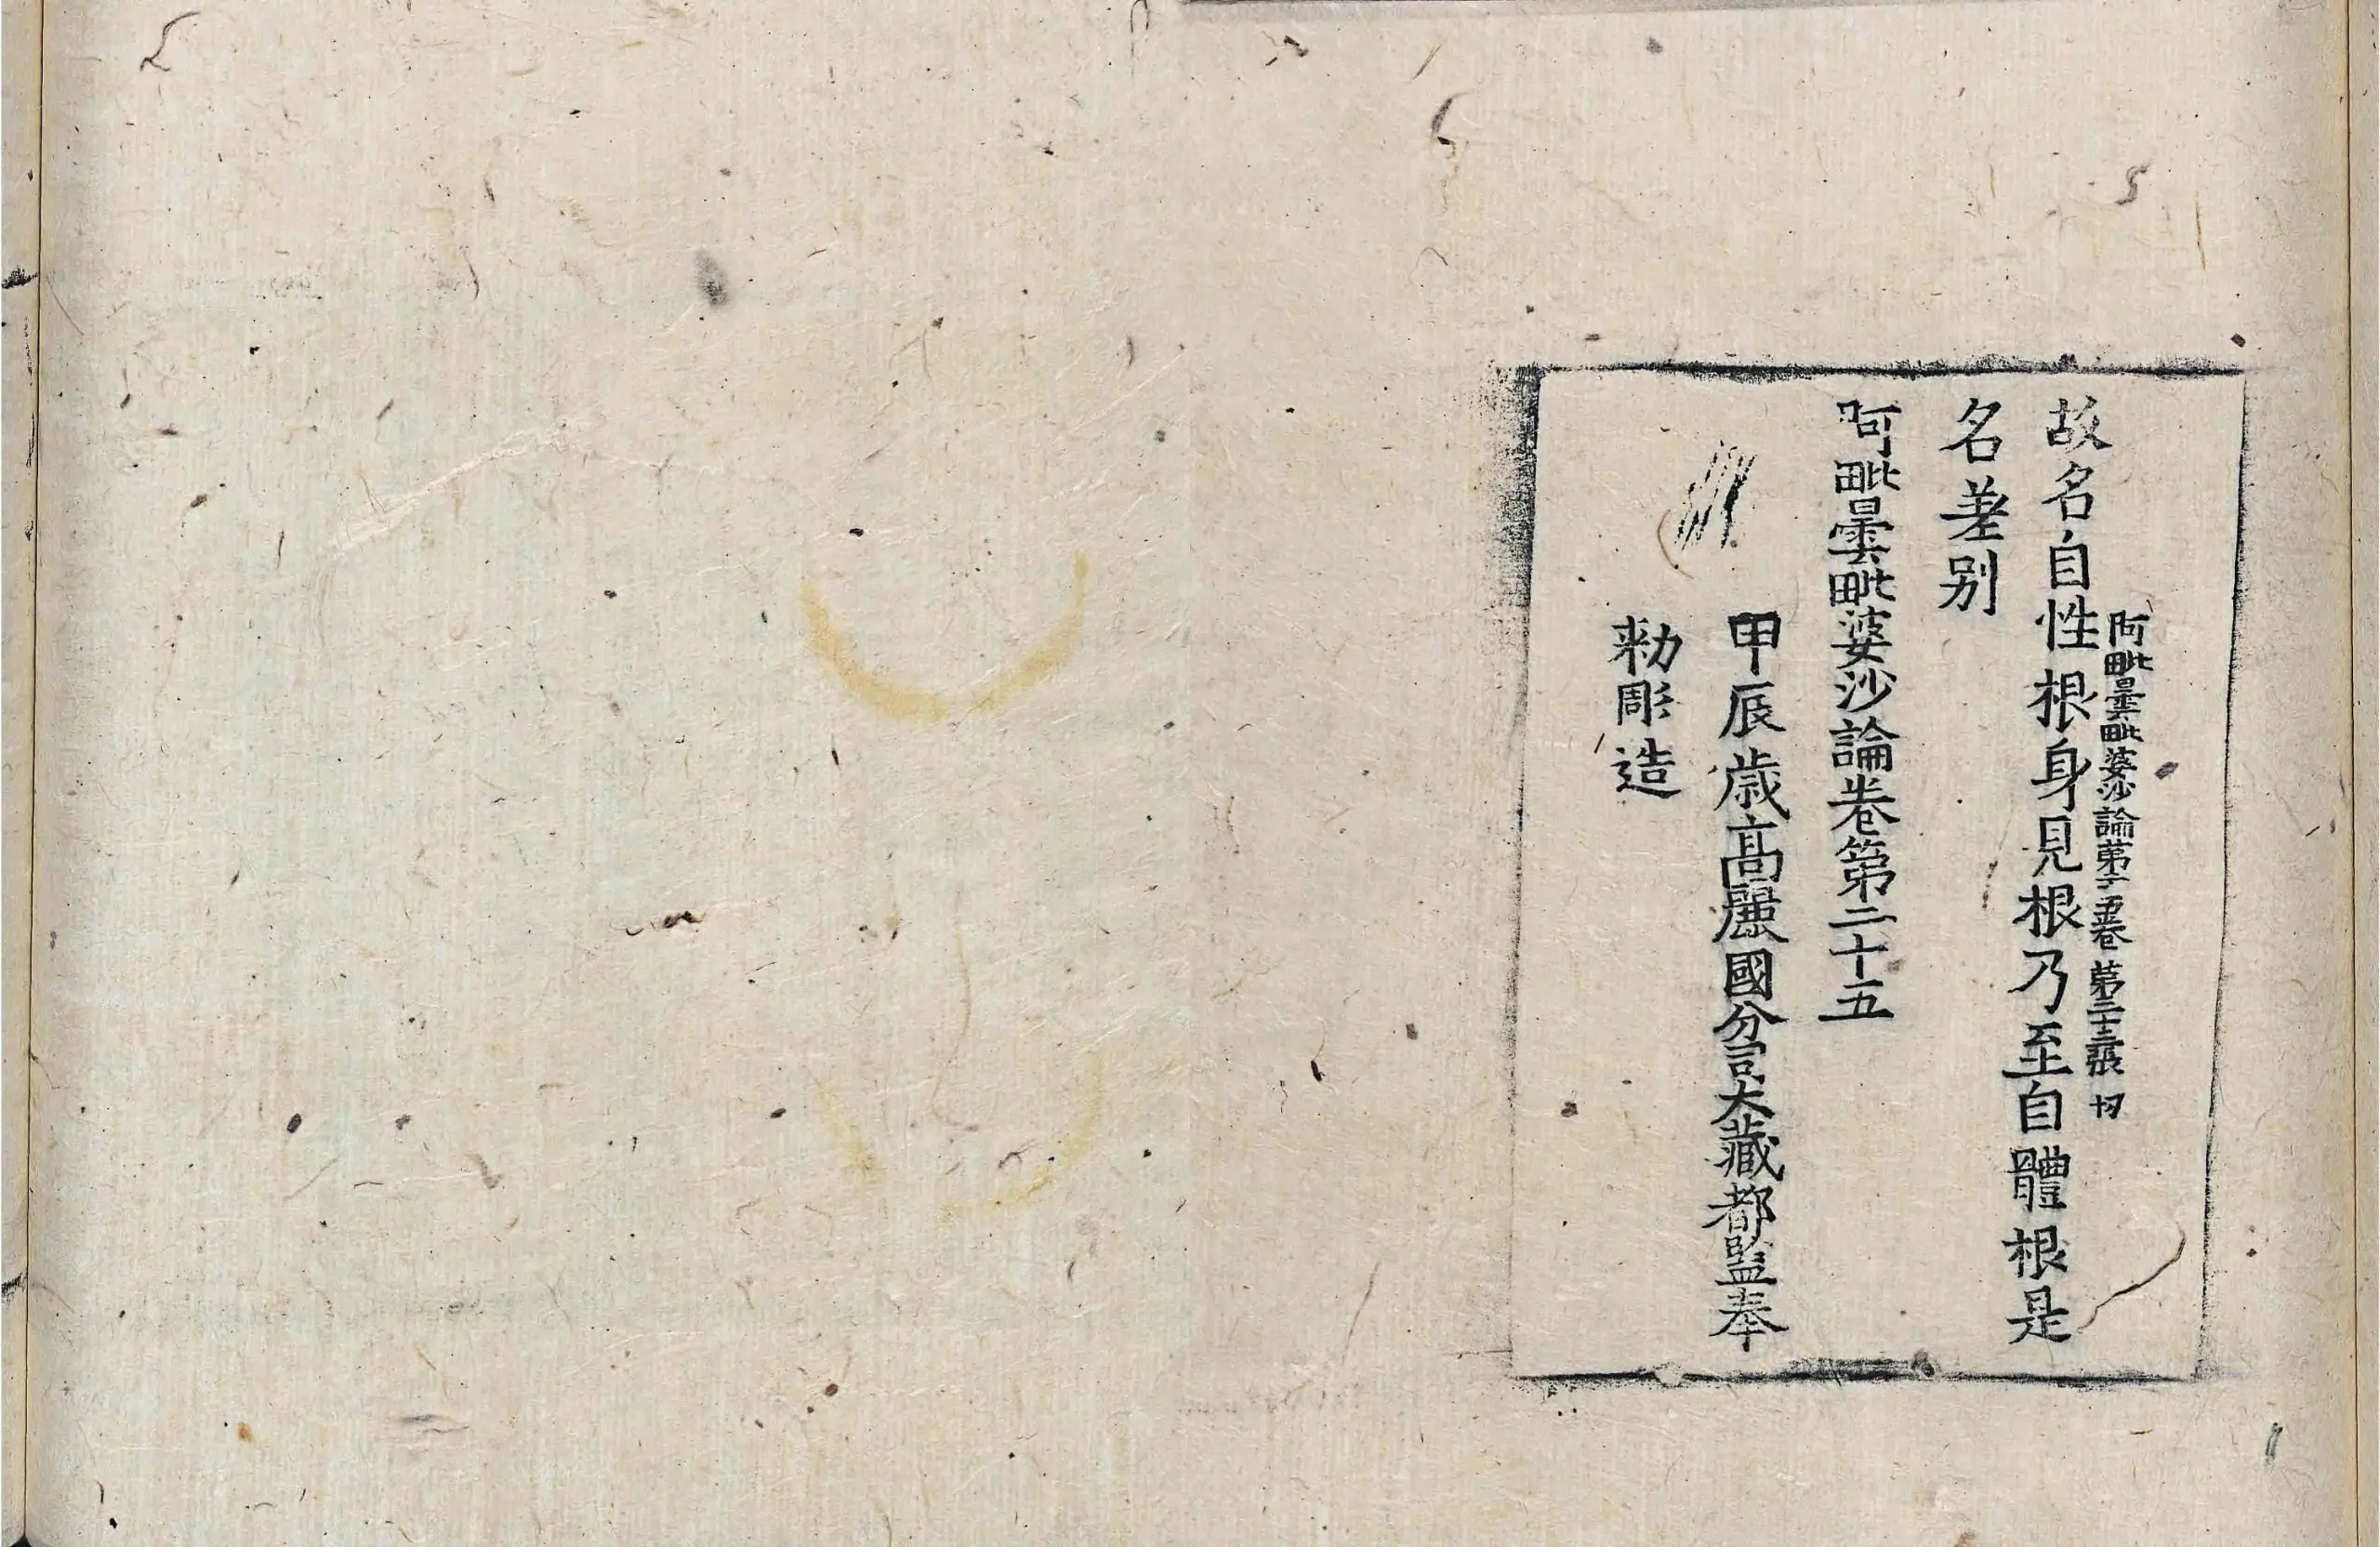 阿毗曇毗婆沙論第二十五卷 第三十三張 切
故名自性根身見根乃至自體根是
名差别
阿毗曇毗婆沙論卷第二十五
甲辰歳高麗國分司大藏都監奉
勑彫造